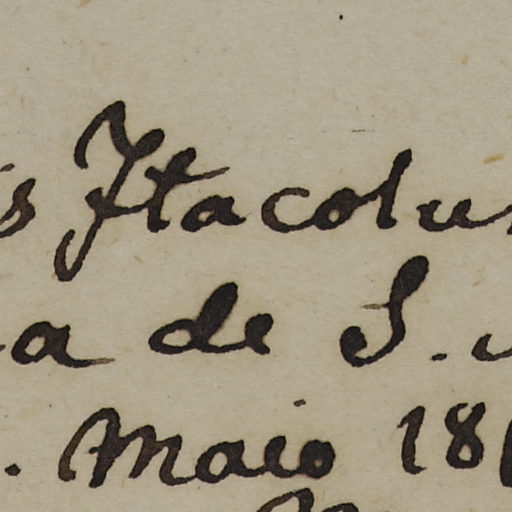 is Itacolu
a de S.
. Maio 18